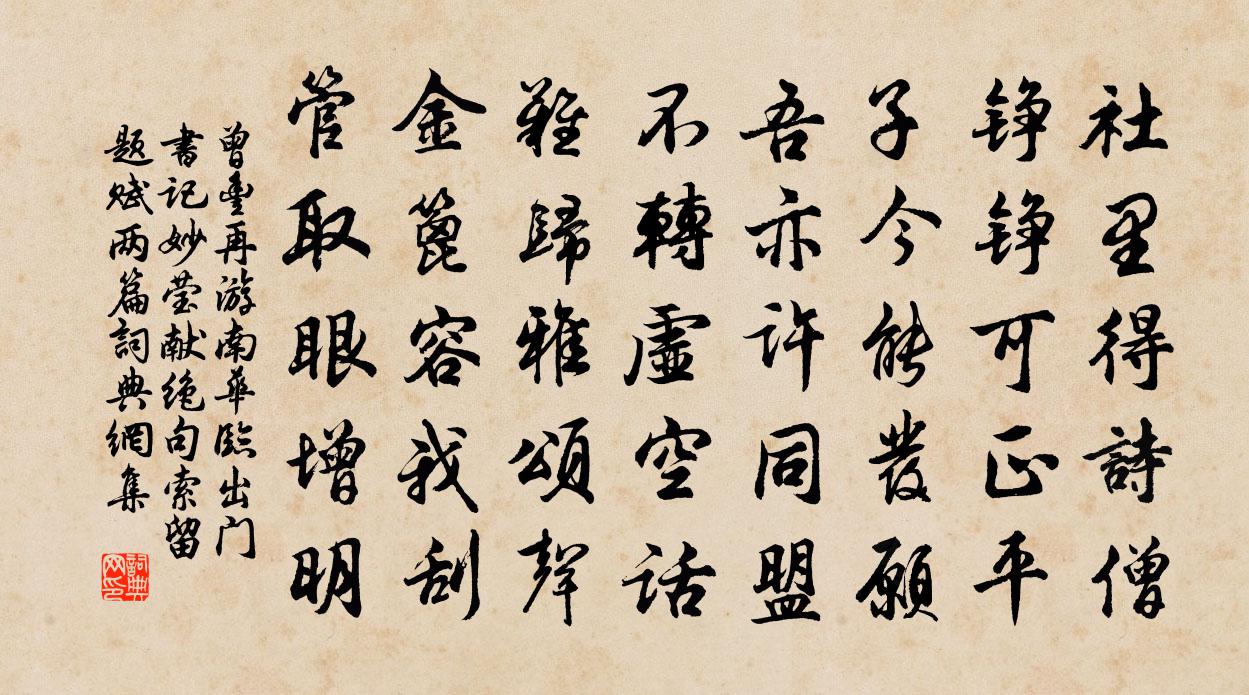 社里得詩僧
錚錚可正平
子今能發願
吾亦許同盟
不轉虛空話
難歸雅頌聲
金篦容我刮
管取眼增明
曾豐再游南華臨出門
書记妙莹献绝句索留
题赋两篇詞典網集
詞典
网印